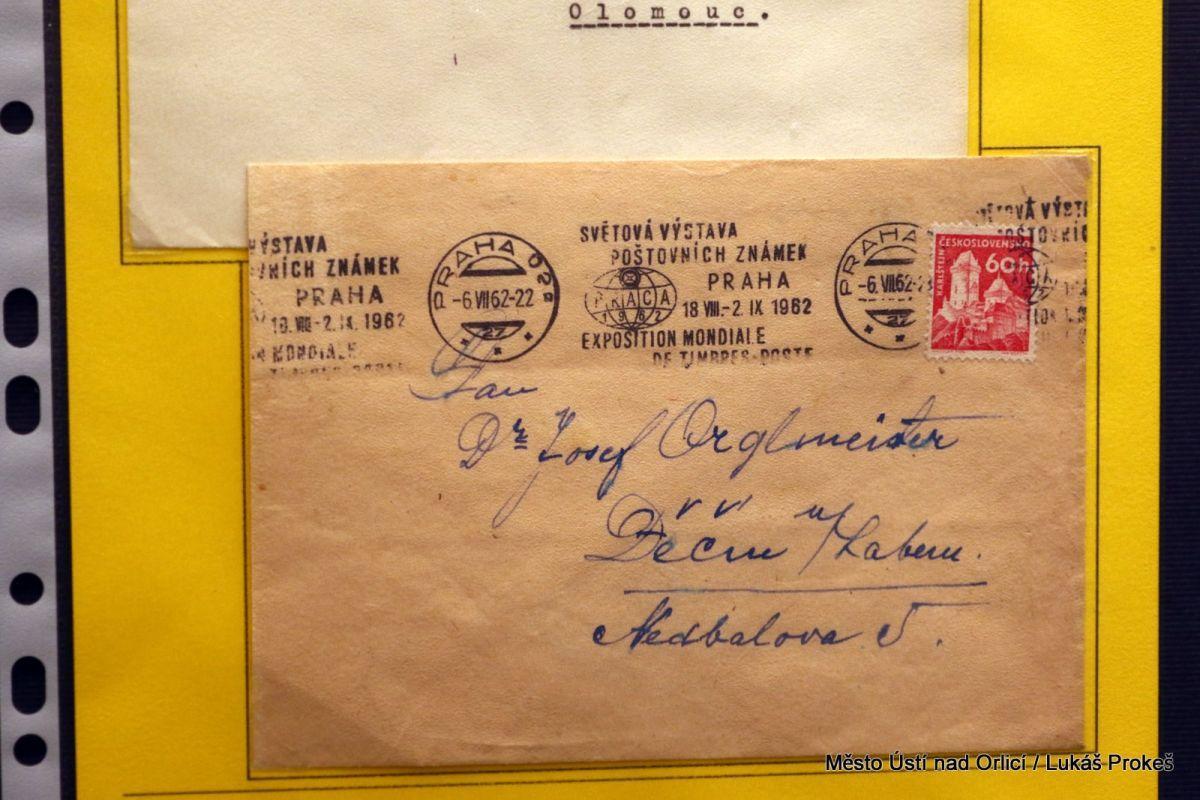 Olomouc.
VÝSTAVA
ZNÁMEK
PRAHA
18. VIII.-2. IX. 1962
MONDIALE
PRAHA 02
-6.VII.62-22
27
SVĚTOVÁ VÝSTAVA
POŠTOVNÍCH ZNÁMEK
PRAHA
PRAGA
1962
18 VIII.-2. IX 1962
EXPOSITION MONDIALE
DE TIMBRES-POSTE
PRAHA
-6.VII.62-2
27
ČESKOSLOVENSKO
60h
KARLŠTEJN
Pan
Dr. Josef Orglmeister
Děčín n/Labem.
Nedbalova 5.
Město Ústí nad Orlicí / Lukáš Prokeš